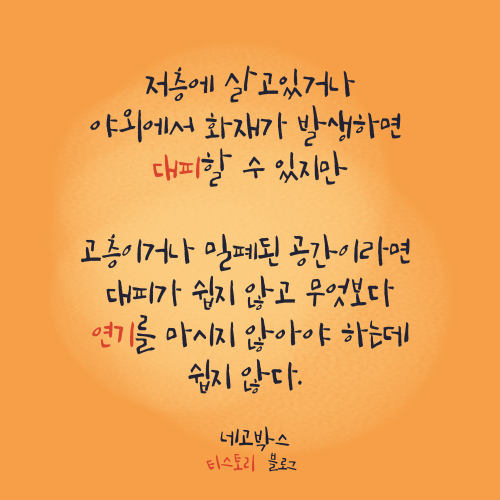 저층에 살고있거나
야외에서 화재가 발생하면
대피할 수 있지만
고층이거나 밀폐된 공간이라면
대피가 쉽지 않고 무엇보다
연기를 마시지 않아야 하는데
쉽지 않다.
네고박스
티스토리 블로그